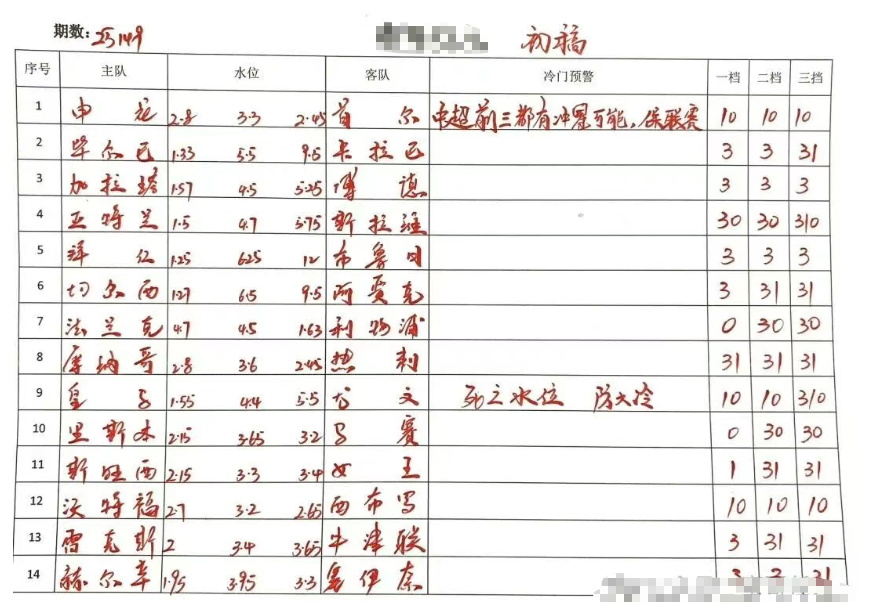 期数: 25149 初稿
序号 主队 水位 客队 冷门预警 一档 二档 三挡
1 申花 2.8 3.3 2.45 首尔 中超前三都有冲冠可能,保联赛 10 10 10
2 毕尔巴 1.33 5.5 9.5 卡拉巴 3 3 31
3 加拉塔 1.57 4.5 5.25 博德 3 3 3
4 亚特兰 1.5 4.7 5.75 斯拉维 30 30 310
5 拜仁 1.25 6.25 12 布鲁日 3 3 3
6 切尔西 1.27 6.5 9.5 阿贾克 3 31 31
7 法兰克 4.7 4.5 1.63 利物浦 0 30 30
8 摩纳哥 2.8 3.6 2.45 热刺 31 31 31
9 皇马 1.55 4.4 5.5 尤文 死亡水位 防大冷 10 10 310
10 里斯本 2.15 3.65 3.2 马赛 0 30 30
11 斯旺西 2.15 3.3 3.4 女王 1 31 31
12 沃特福 2.7 3.2 2.65 西布罗 10 10 10
13 雷克斯 2 3.4 3.65 牛津联 3 31 31
14 赫尔辛 1.95 3.95 3.3 塞伊奈 31